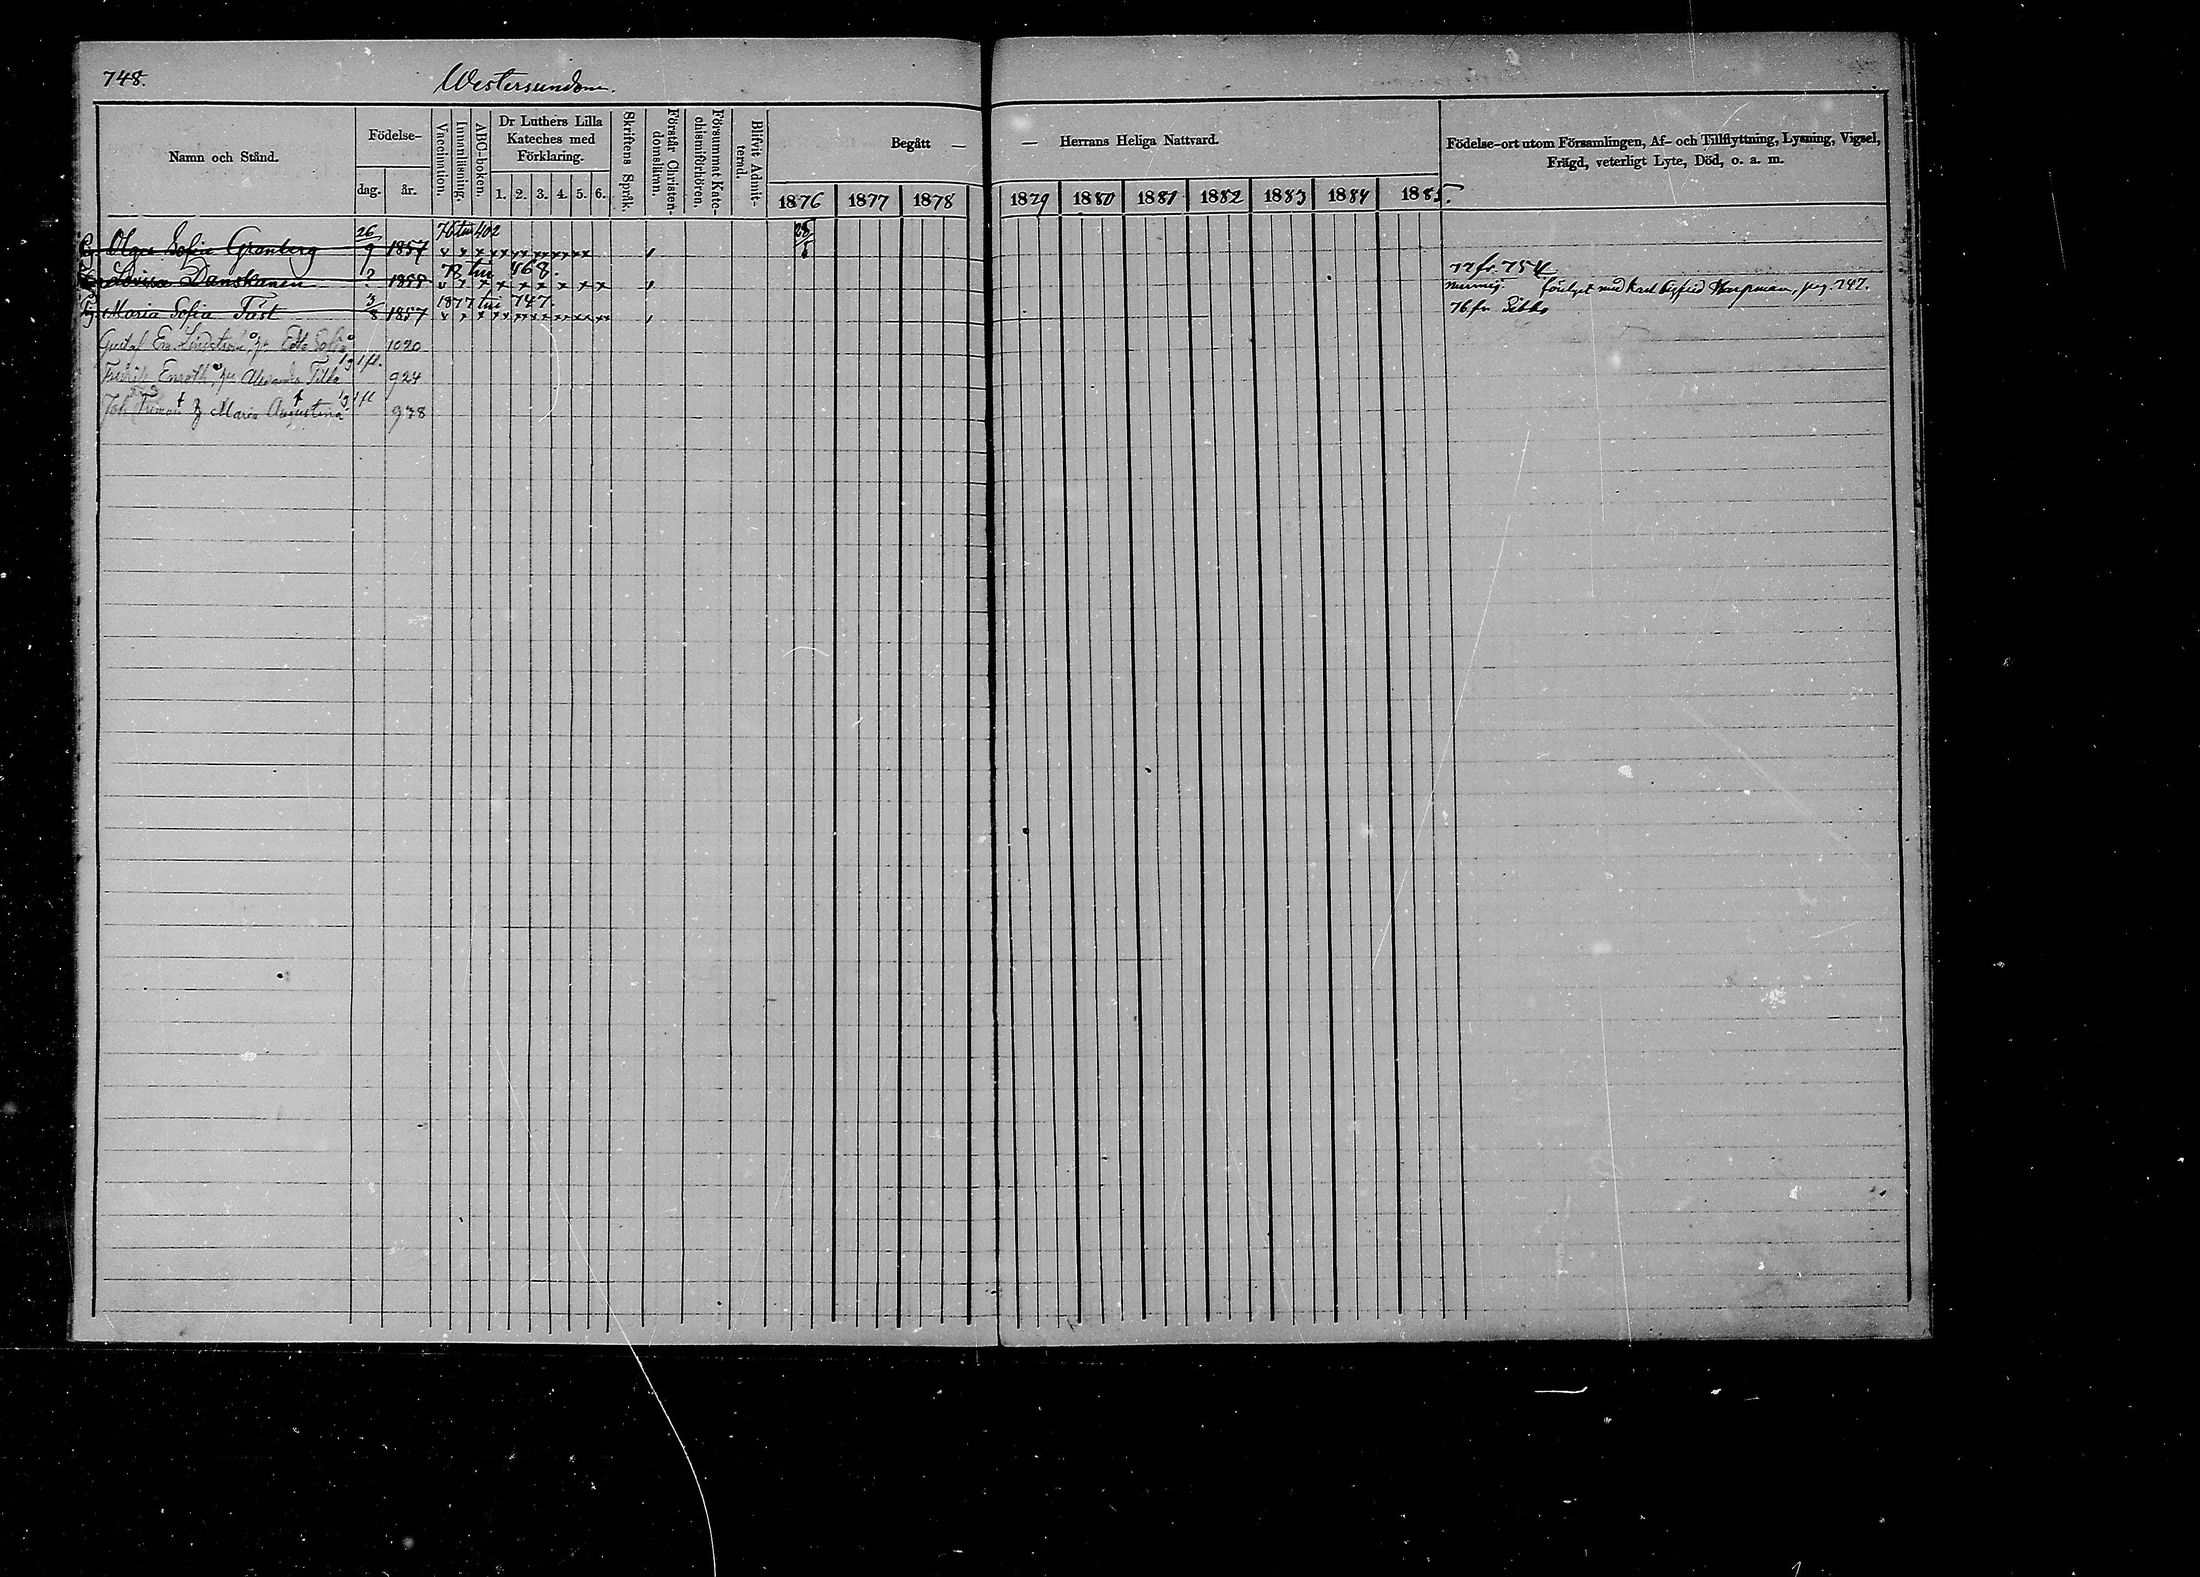 748.
Westersundom.
Namn och Stånd.
Födelse-
dag.
år.
Vaccination.
Innanläsning.
ABC-boken.
Dr Luthers Lilla
Kateches med
Förklaring.
1. 2. 3. 4. 5. 6.
Skriftens Språk.
Förstår Christen-
domsläran.
Försummat Kate-
chismiförhören.
Blifvit Admit-
terad.
Begått —
— Herrans Heliga Nattvard.
1876 1877 1878 1879 1880 1881 1882 1883 1884 1885.
Födelse-ort utom Församlingen, Af- och Tillflyttning, Lysning, Vigsel,
Frägd, veterligt Lyte, Död, o. a. m.
Olga Sofia Granberg 26/9 1857 76 till 402 28/5
Lovisa Danskanen 2 1858 78 till 468. 77 fr. 754
förlofvad med Karl Sigfrid Harpman, pag. 747.
Maria Sofia Täst 3/8 1857 1877 till 747. 76 fr. Sibbo
Gustaf Em. Lindström Edla Sofia 1020
Fredrik Enroth Alexandra Tilda 924
Joh. Maria Augustina 978